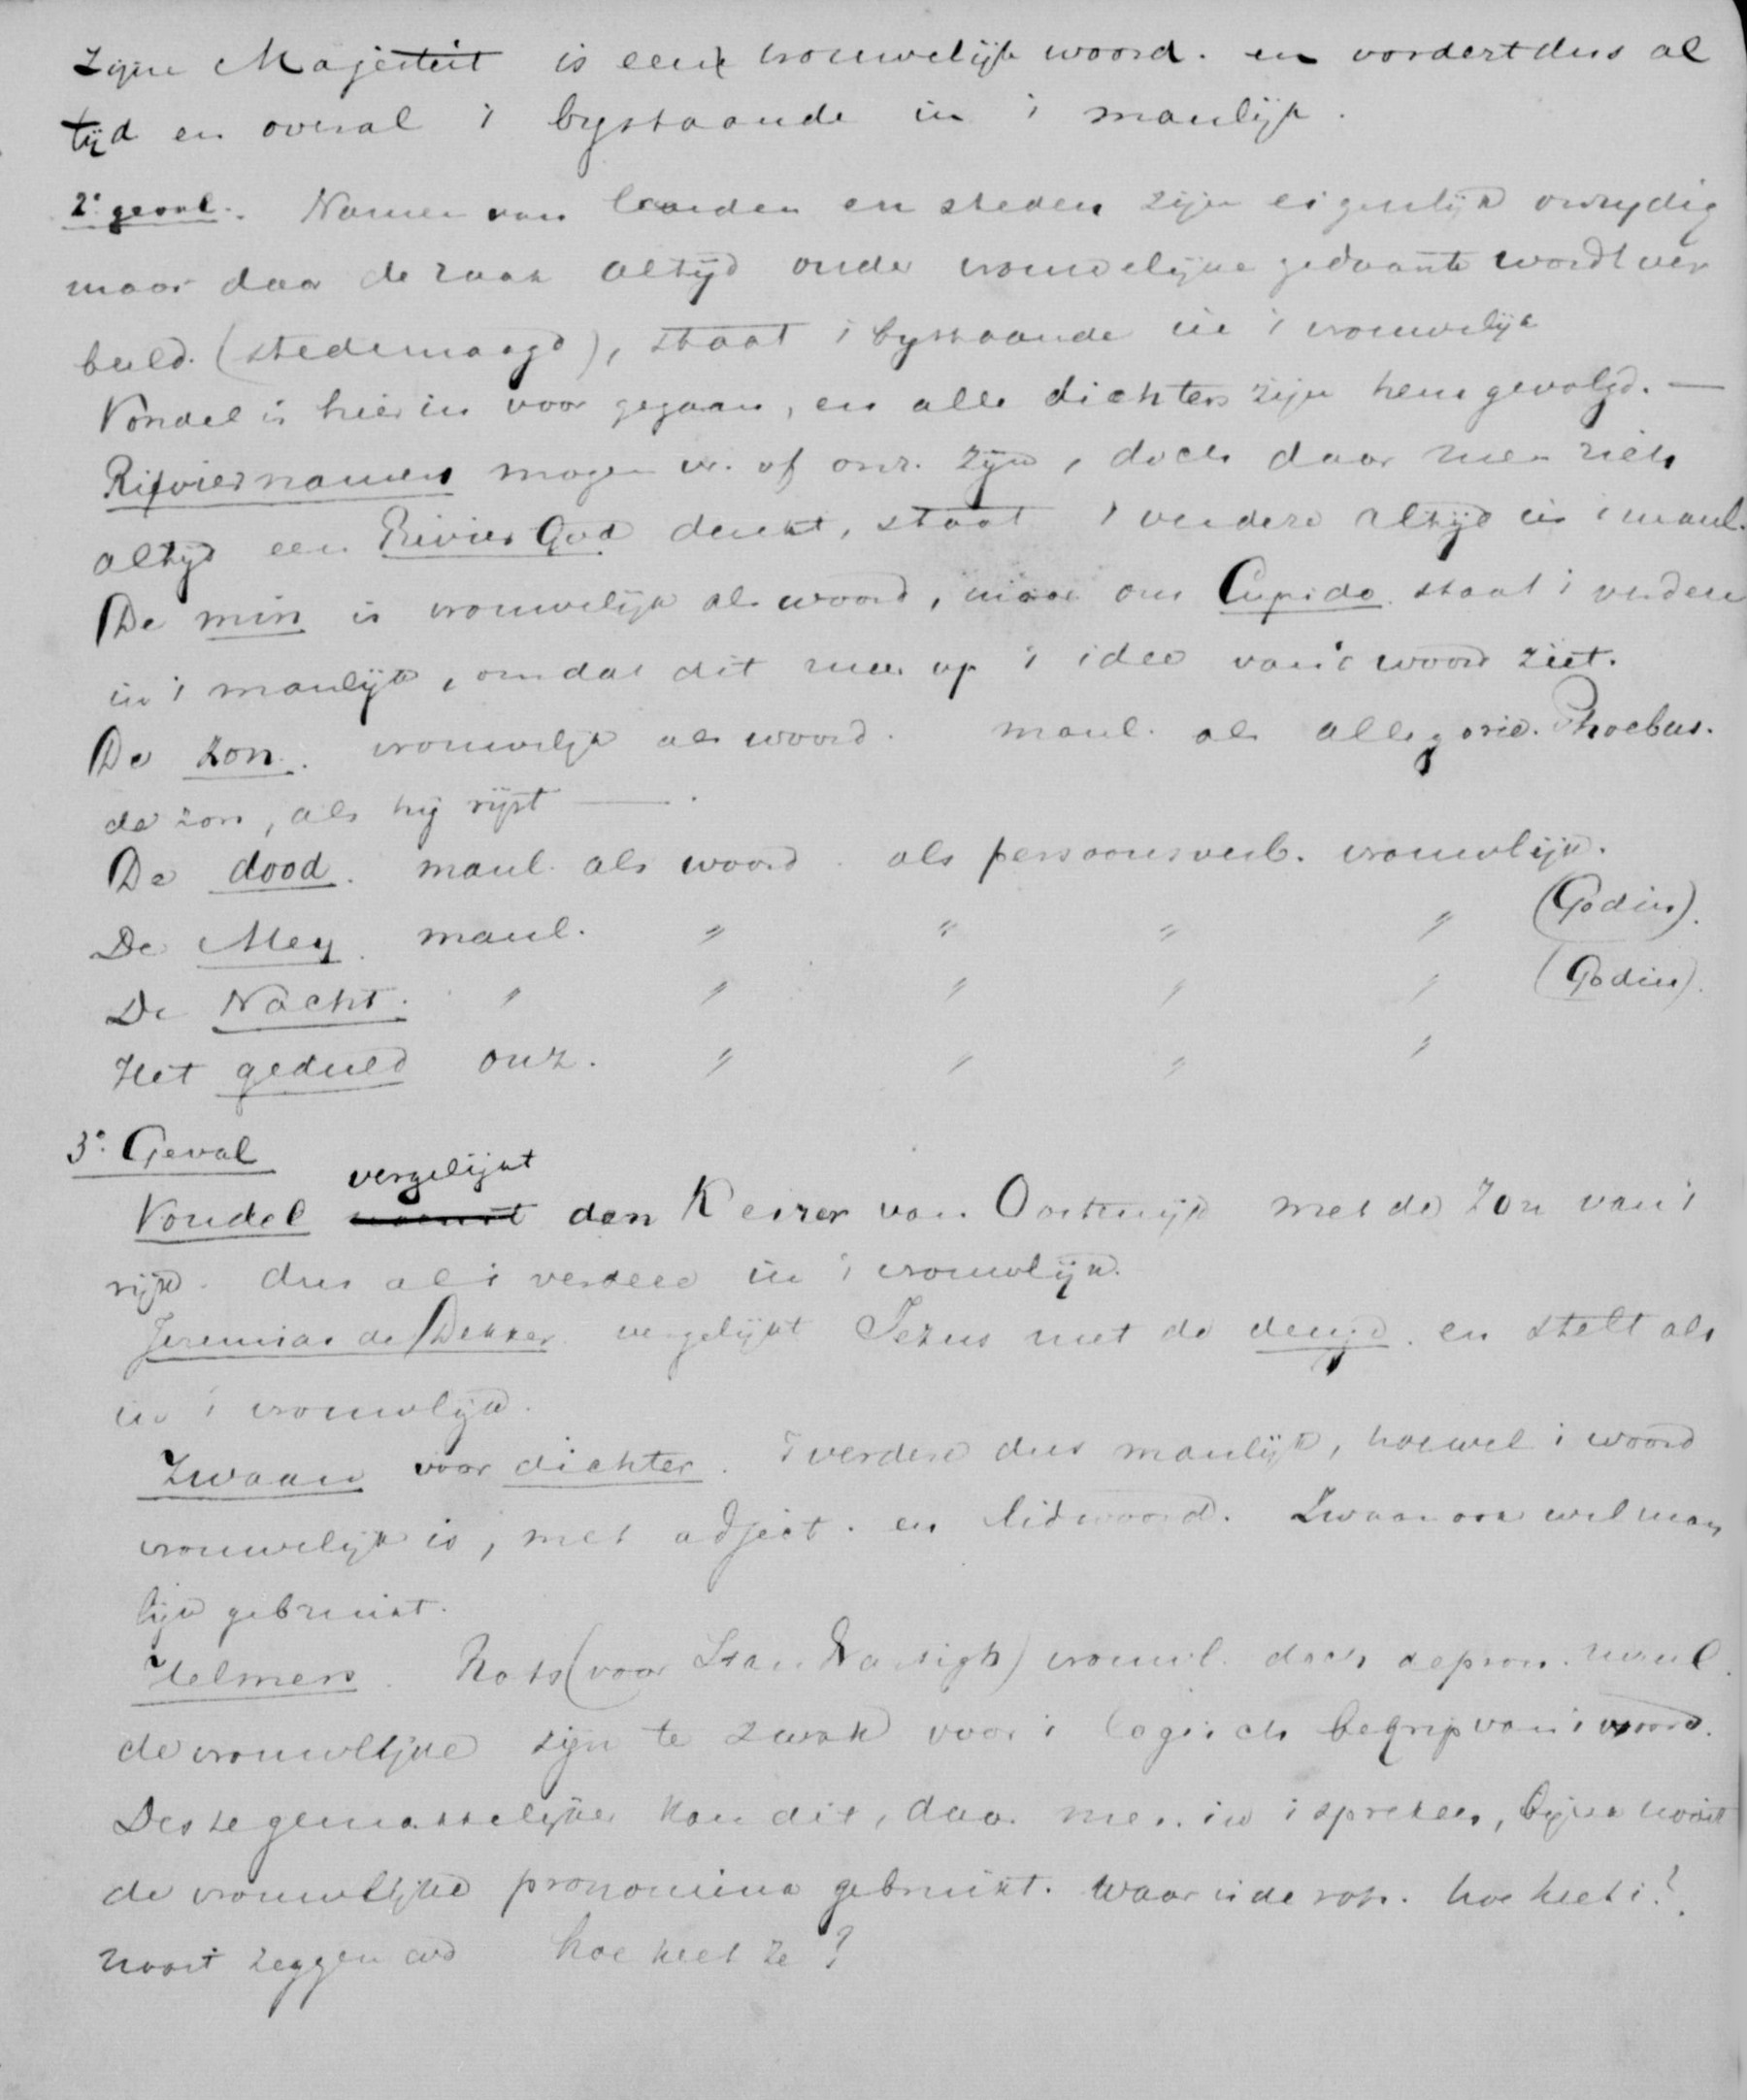 Zijne Majesteit is een vrouwelijk woord. en vordert dus al
tijd en overal 't bystaande in 't manlijk.
2e geval. Namen van landen en steden zijn eigenlijk onzydig
maar daar de zaak altijd onder vrouwelijke gedaante wordt ver
beeld. (stedemaagd), staat 't bystaande in 't vrouwelijk
Vondel is hierin voor gegaan, en alle dichters zijn hem gevolgd. —
Riviernamen mogen vr. of onz. zijn, doch daar men zich
altijd een Rivier God denkt, staat 't verdere altijd in 't manl.
De min is vrouwelijk als woord, maar om Cupido staat 't verdere
in 't manlijk, omdat dit meer op 't idee van 't woord ziet.
De zon. vrouwelijk als woord. manl. als allegorie. Phoebus.
de zon, als hij rijst — .
De dood. manl. als woord. als persoonsverb. vrouwlijk.
De Mey. manl. " " " " (Godin).
De Nacht. " " " " " (Godin).
Het geduld onz. " " " "
3e Geval
vergelijkt
Vondel den Keizer van Oostenrijk met de zon van 't
rijk. dus al 't verdere in 't vrouwlijk.
Jeremias de Dekker vergelijkt Jezus met de deugd. en stelt als
in 't vrouwlijk.
Zwaan voor dichter. 't verdere dus manlijk, hoewel 't woord
vrouwelijk is, met adject. en lidwoord. Zwaan ook wel man
lijk gebruikt.
Helmers. Rots (voor Standvastigh) vrouwl. doch de pron. manl.
de vrouwelijke zijn te zwak voor 't logisch begrip van 't woord.
Des te gemakkelijker kan dit, daar men in 't spreken, bijna nooit
de vrouwlijke pronomina gebruikt. waar is de rots. hoe heet i?
nooit zeggen we hoe heet ze?